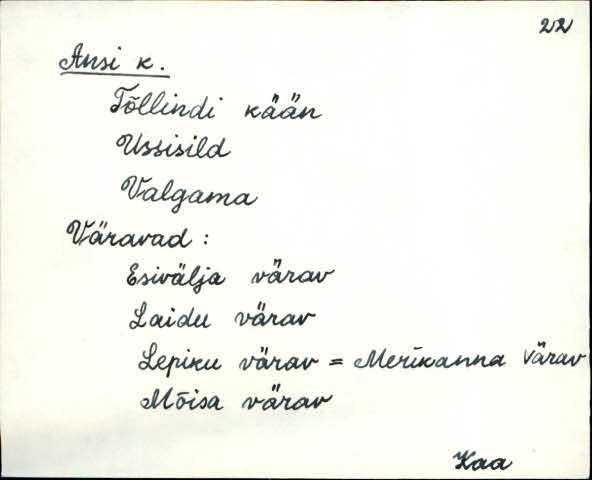 22
Ansi k.
Tõllindi kään
Ussisild
Valgama
Väravad :
Esivälja värav
Laidu värav
Lepiku värav = Merikanna värav
Mõisa värav
Kaa